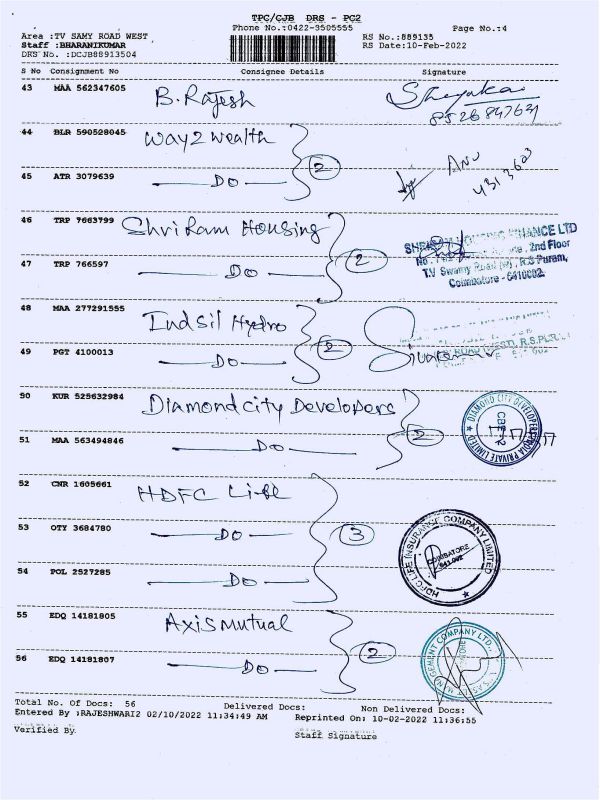 TPC/CJB DRS - PC2
Phone No.:0422-3505555 Page No.:4
Area :TV SAMY ROAD WEST RS No.:889135
Staff :BHARANIKUMAR RS Date:10-Feb-2022
DRS No. :DCJB88913504
S No Consignment No Consignee Details Signature
43 MAA 562347605 B. Rajesh
44 BLR 590528045 Way2wealth ANU
45 ATR 3079639 DO 2
46 TRP 7663799 Shri Ram Housing
47 TRP 766597 DO 2
FINANCE LTD
2nd Floor
T.V Swamy Road (W), R.S Puram,
Coimbatore - 641002.
48 MAA 277291555 Indsil Hydro
49 PGT 4100013 DO 2
90 KUR 525632984 Diamondcity Developers
51 MAA 563494846 DO 2
DIAMOND CITY DEVELOPERS INDIA PRIVATE LIMITED
52 CNR 1605661 HDFC Life
53 OTY 3684780 DO 3
54 POL 2527285 DO
HDFC LIFE INSURANCE COMPANY LIMITED
COIMBATORE
55 EDQ 14181805 Axismutual
56 EDQ 14181807 DO 2
MANAGEMENT COMPANY LTD.
Total No. Of Docs: 56 Delivered Docs: Non Delivered Docs:
Entered By :RAJESHWARI2 02/10/2022 11:34:49 AM Reprinted On: 10-02-2022 11:36:55
Verified By Staff Signature